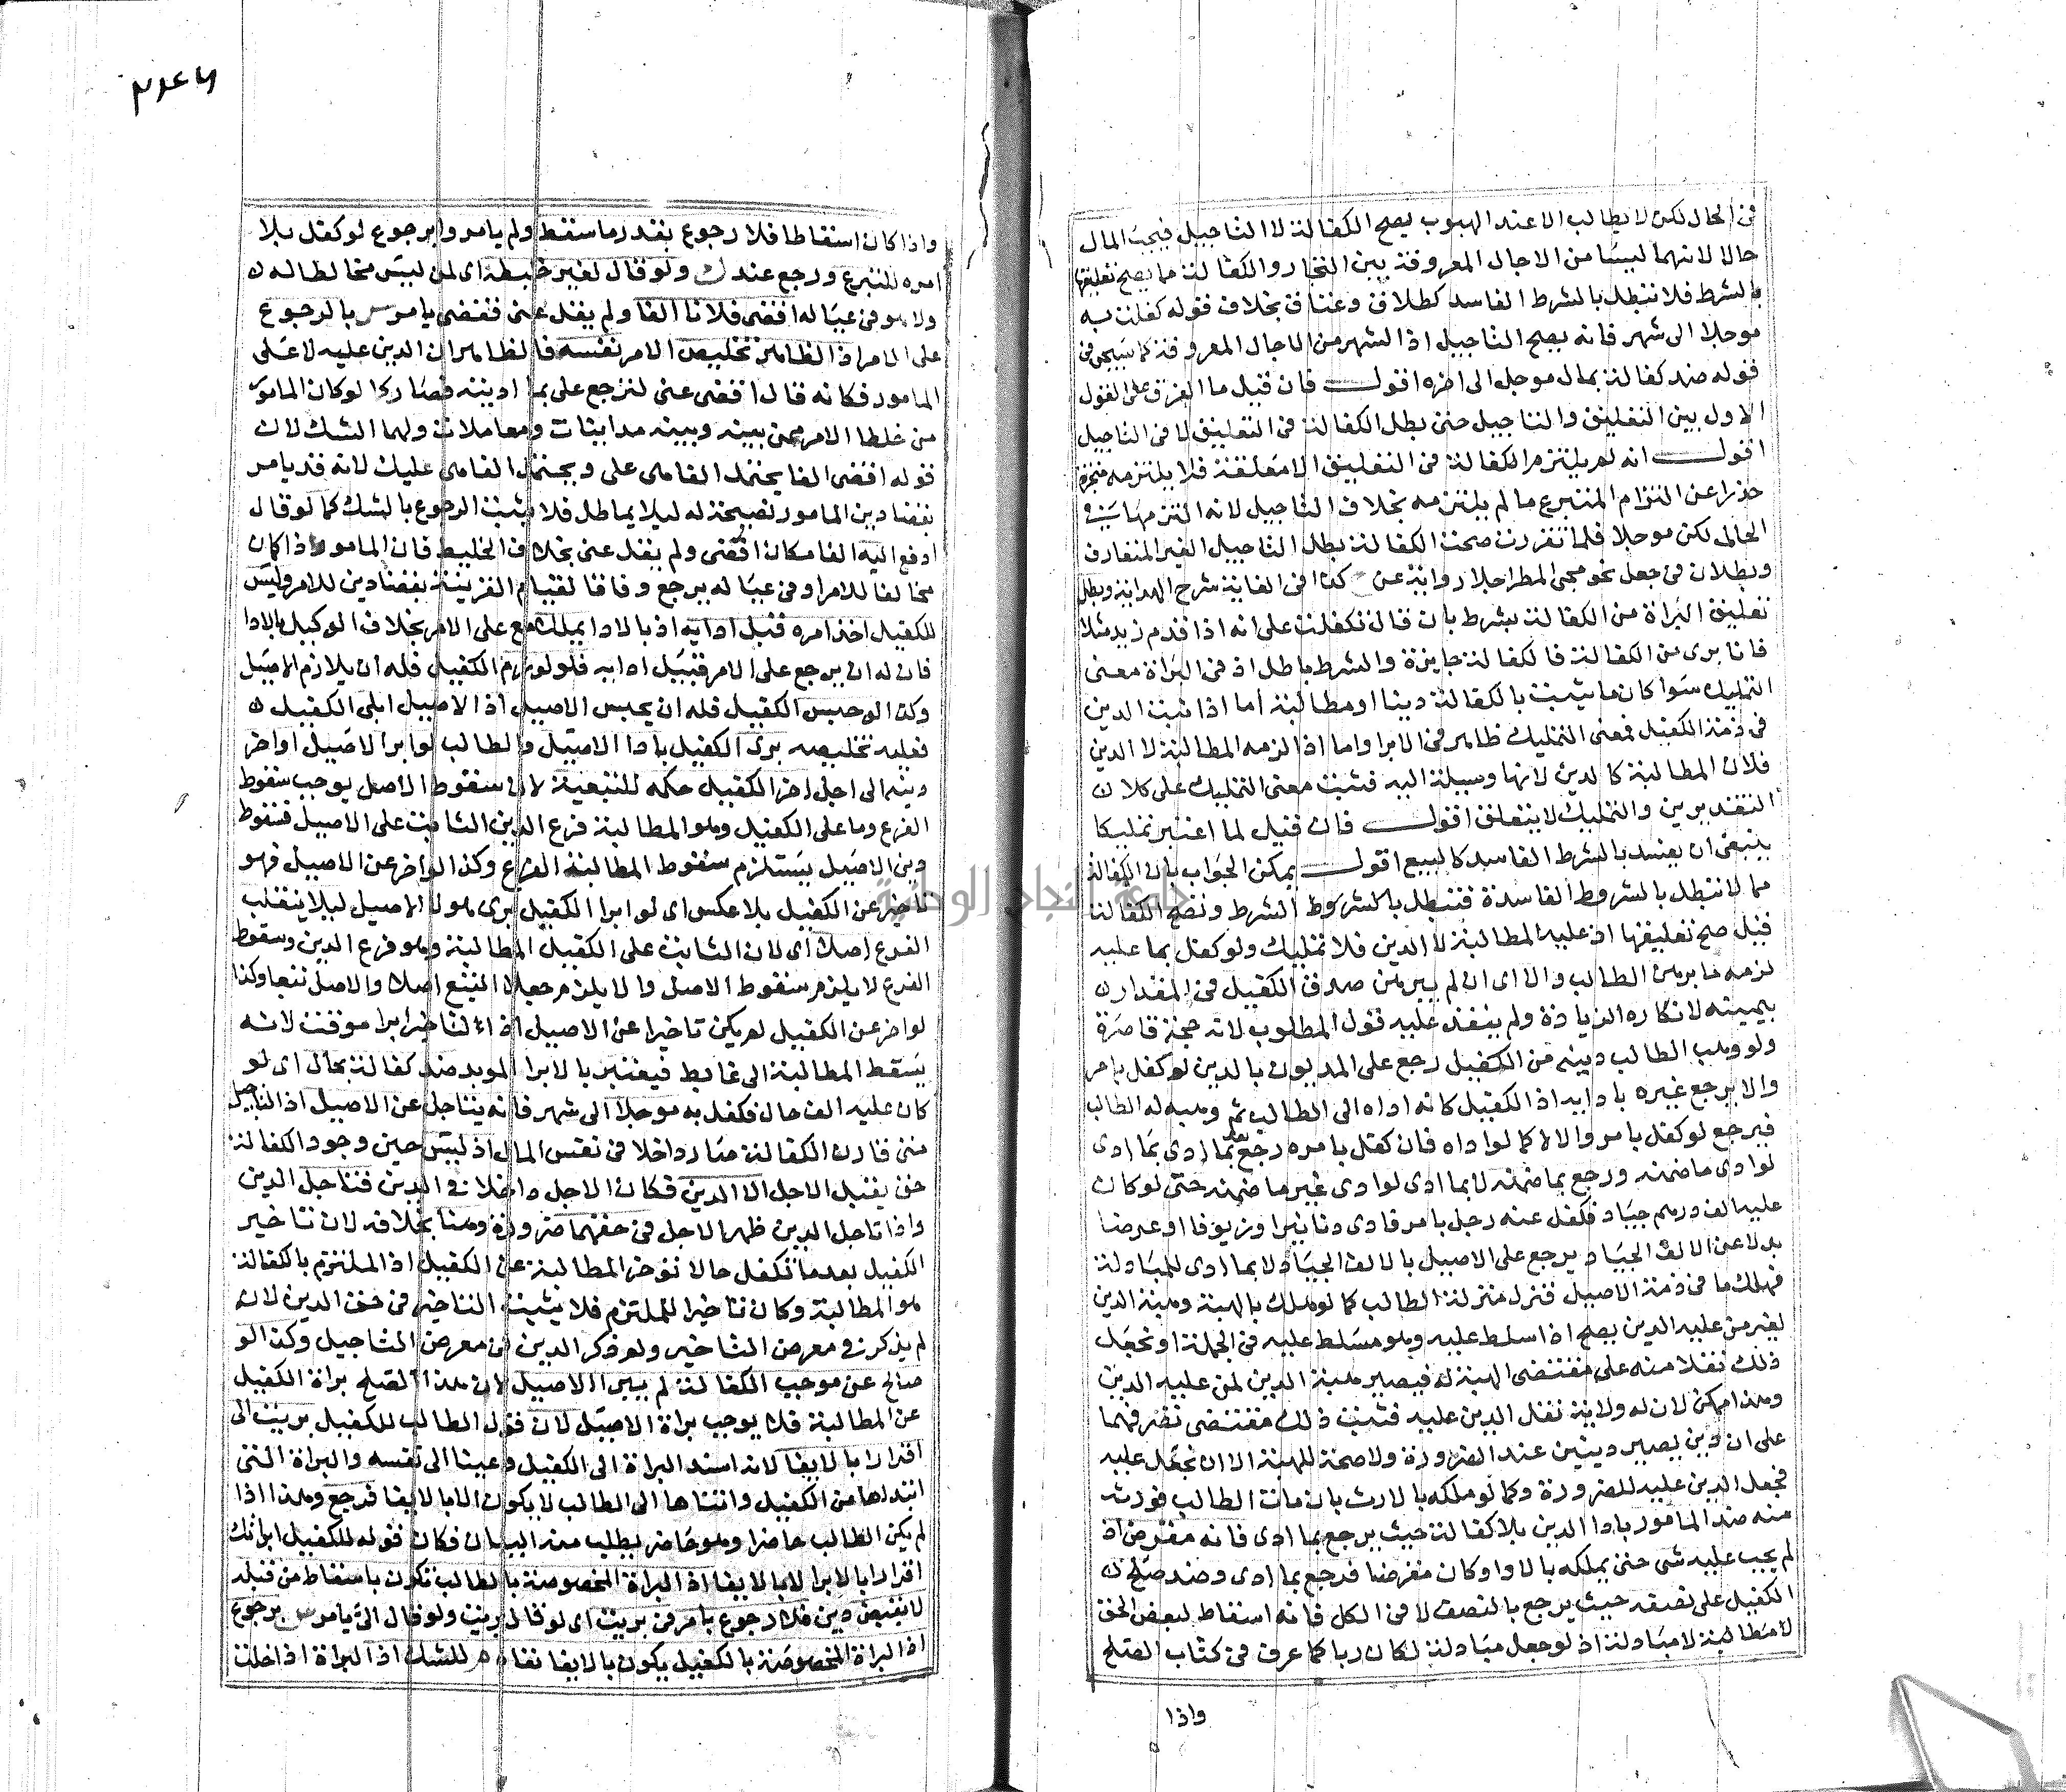 في الحال لكن لا يطالب الا عند الهبوب يصح الكفالة لا التاجيل فيجب المال
حالا لانهما ليسا من الاجال المعروفة بين التجار والكفالة مما يصح تعليقها
بالشرط فلا تبطل بالشرط الفاسد كطلاق وعتاق بخلاف قوله كفلت به
موجلا الى شهر فانه يصح التاجيل اذ الشهر من الاجال المعروفة كما سيجى في
قوله ضد كفالة بمال موجل الى اخره اقول فان قيل ما الفرق على القول
الاول بين التعليق والتاجيل حتى بطل الكفالة في التعليق لا في التاجيل
اقول انه لم يلتزم الكفالة في التعليق الا معلقة فلا يلتزمه منجزه
حذرا عن التزام المتبرع ما لم يلتزمه بخلاف التاجيل لانه التزمها في
الحال لكن موجلا فلما تقررت صحت الكفالة بطل التاجيل الغير المتعارف
وبطلان في جعل نحو مجى المطر اجلا رواية عن كذا في الغاية شرح الهداية وبطل
تعليق البراة من الكفالة بشرط بان قال تكفلت على انه اذا قدم زيد مثلا
فانا برى من الكفالة فالكفالة جايزة والشرط باطل اذ في البراة معنى
التمليك سوا كان ما يثبت بالكفالة دينا او مطالبة أما اذا ثبت الدين
في ذمة الكفيل فمعنى التمليك ظاهر في الابرا واما اذا لزمه المطالبة لا الدين
فلان المطالبة كالدين لانها وسيلة اليه فثبت معنى التمليك على كلا
التقديرين والتمليك لا يتعلق اقول فان قيل لما اعتبر تمليكا
ينبغى ان يفسد بالشرط الفاسد كالبيع اقول يمكن الجواب بان الكفالة
مما لا تبطل بالشروط الفاسدة فتبطل بالشروط الشرط وتصح الكفالة
قيل صح تعليقها اذ عليه المطالبة لا الدين فلا تمليك ولو كفل بما عليه
لزمه ما برهن الطالب والا اى ان لم يبرهن صدق الكفيل في المقدار
بيمينه لانكاره الزيادة ولم ينفذ عليه قول المطلوب لانه حجة قاصرة
ولو وهب الطالب دينه من الكفيل رجع على المديون بالدين لو كفل بامر
والا يرجع غيره بادايه اذ الكفيل كانه اداه الى الطالب ثم وهبه له الطالب
فيرجع لو كفل بامر والا لا كما لو اداه فان كفل بامره رجع بما ادى بما ادى
لو ادى ما ضمنه ورجع بما ضمنه لا بما ادى لو ادى غير ما ضمنه حتى لو كان
عليه الف درهم جياد فكفل عنه رجل بامر فادى دنانيرا وزيوفا او عرضا
بدلا عن الالف الجياد يرجع على الاصيل بالالف الجياد لا بما ادى للمبادلة
فهلك ما في ذمة الاصيل فنزل منزلة الطالب كما لو ملك بالهبة وهبة الدين
لغير من عليه الدين يصح اذا سلط عليه وهو مسلط عليه في الجملة او نجعل
ذلك نقلا منه على مقتضى الهبة له فيصير هبة الدين لمن عليه الدين
وهذا ممكن لان له ولاية نقل الدين عليه فثبت ذلك مقتضى تصرفهما
على ان دين يصير دينين عند الضرورة ولا صحة للهبة الا ان نجعل عليه
فجعل الدين عليه للضرورة وكما لو ملكه بالارث بان مات الطالب فورث
منه ضد المامور بادا الدين بلا كفالة حيث يرجع بما ادى فانه مقرض اذ
لم يجب عليه شى حتى يملكه بالادا وكان مقرضا فرجع بما ادى وضد صلح
الكفيل على نصفه حيث يرجع بالنصف لا في الكل فانه اسقاط لبعض الحق
لا مطالبة لا مبادلة اذ لو جعل مبادلة لكان ربا كما عرف في كتاب الصلح
واذا
واذا كان اسقاطا فلا رجوع بقدر ما سقط ولم يامر وا يرجوع لو كفل بلا
امره للتبرع ورجع عندك ولو قال لغير خليطه اى لمن ليس مخالطا له
ولا هو في عياله اقضى فلانا الفا ولم يقل عنى فقضى يامر بالرجوع
على الامر اذ الظاهر تخليص الامر نفسه فالظاهر ان الدين عليه لا على
المامور فكانه قال اقضى عنى لترجع على بما اديته فصار كا لو كان المامور
من خلطا الامر ممن بينه وبينه مداينات ومعاملات ولهما الشك لان
قوله اقضى الفا يحتمل الفا هى على ويحتمل الفا هى عليك لانه قد يامر
بقضا دين المامور نصيحة له ليلا يماطل فلا يثبت الرجوع بالشك كما لو قال
ادفع اليه الفا مكان اقضى ولم يقل عنى بخلاف الخليط فان المامور اذا كان
مخالفا للامر او في عياله يرجع وفاقا لقيام القرينة بقضا دين للامر وليس
للكفيل اخذ امره قبل ادايه اذ بالادا يملك مع على الامر بخلاف الوكيل بالادا
فان له ان يرجع على الامر قبيل ادايه فلو لوزم الكفيل فله ان يلازم الاصيل
وكذا لو حبس الكفيل فله ان يحبس الاصيل اذ الاصيل ابلى الكفيل
فعليه تخليصه برى الكفيل بادا الاصيل والطالب لو ابرا الاصيل او اخر
دينه الى اجل اخر الكفيل حكمه للتبعية لان سقوط الاصل يوجب سقوط
الفرع وما على الكفيل وهو المطالبة فرع الدين الثابت على الاصيل فسقوط
دين الاصيل يستلزم سقوط المطالبة الفرع وكذا لو اخر عن الاصيل فهو
تاخير عن الكفيل بلا عكس اى لو ابرا الكفيل برى هو لا الاصيل ليلا ينقلب
الفرع اصلا اى لان الثابت على الكفيل المطالبة وهو فرع الدين وسقوط
الفرع لا يلزم سقوط الاصل والا يلزم جعل المتبع اصلا والاصل تبعا وكذا
لو اخر عن الكفيل لم يكن تاخيرا عن الاصيل اذ التاخير ابرا موقت لانه
يسقط المطالبة الى غاية فيعتبر بالابرا الموبد ضد كفالة بحال اى لو
كان عليه الف حال فكفل به موجلا الى شهر فانه يتاجل عن الاصيل اذ التاجيل
متى قارن الكفالة صار داخلا في نفس المال اذ ليس حين وجود الكفالة
حق يقبل الاجل الا الدين فكان الاجل داخلا في الدين فتاجل الدين
واذا تاجل الدين ظهر الاجل في حقهما ضرورة وهنا بخلافه لان تاخير
الكفيل بعد ما تكفل حالا تؤخر المطالبة عن الكفيل اذ الملتزم بالكفالة
هو المطالبة وكان تاخيرا للملتزم فلا يثبت التاخير في حق الدين لان
لم يذكر في معرض التاخير ولو ذكر الدين في معرض التاجيل وكذا لو
صالح عن موجب الكفالة لم يبرا الاصيل لان هذا الصلح براة الكفيل
عن المطالبة فلا يوجب براة الاصيل لان قول الطالب للكفيل بريت الى
اقرارا بالايفا لانه اسند البراة الى الكفيل وغينا الى نفسه والبراة التى
ابتداها من الكفيل وانتهاها الى الطالب لا يكون الا بالايفا فرجع وهذا اذا
لم يكن الطالب حاضرا وهو حاضر يطلب منه البيان فكان قوله للكفيل ابراتك
اقرارا بالابرا لا بالايفا اذ البراة المخصوصة بالطالب تكون باسقاط من قبله
لا بقبض دين فلا رجوع بامر في بريت اى لو قال بريت ولو قال الى يامر برجوع
اذ البراة المخصوصة بالكفيل يكون بالايفا نفاه للشك اذ البراة اذا خلت
جامعة النجاح الوطنية